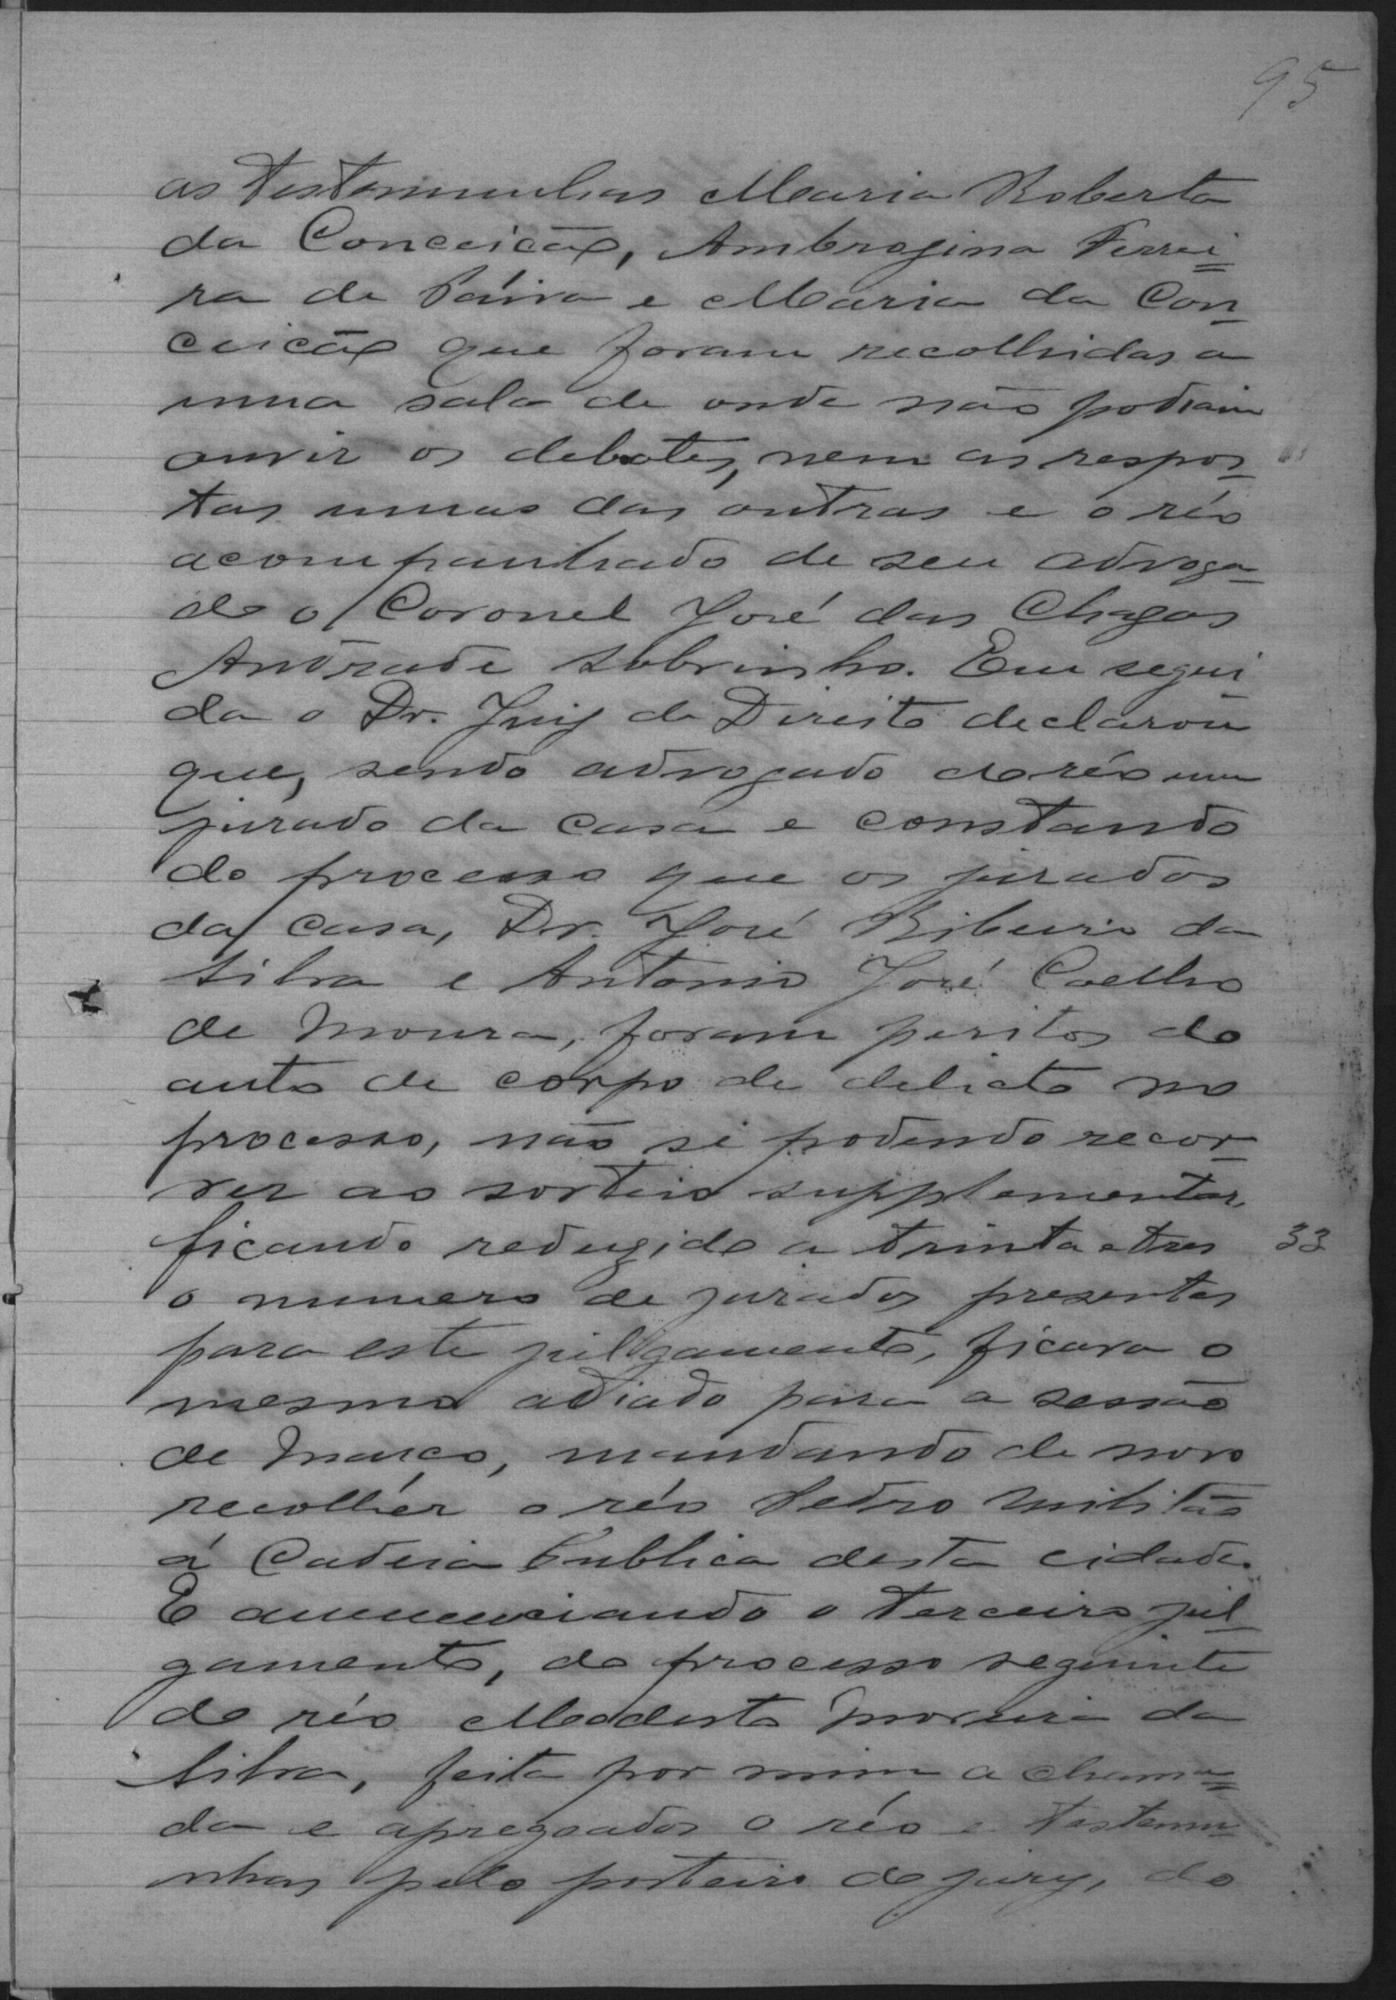 95
as testemunhas Maria Roberta
da Conceicão, Ambrogina Ferrei=
ra de Páiva e Maria da Con-
ceicão que foram recolhidas a
uma sala de onde não podiam
ouvir os debates, nem as respos-
tas umas das outras e o réo
acompanhado de seu advoga-
do o Coronel José das Chagas
Andrade Sobrinho. Em segui-
da o Dr. Juiz de Direito declarou
que, sendo advogado do réo um
jurado da casa e constando
do processo que os jurados
da casa, Dr. José Ribeiro da
Silva e Antonio José Coelho
de Moura, foram peritos do
auto de corpo de delicto no
processo, não se podendo recor-
rer ao sorteio supplementar,
ficando reduzido a trinta e tres 33
o numero de jurados presentes
para este julgamento, ficava o
mesmo adiado para a sessão
de Março, mandando de novo
recolhêr o réo Pedro Militão
á Cadeia Publica desta cidade.
E annunciando o terceiro jul-
gamento, do processo seguinte
do réo Modesto Moreira da
Silva, feita por mim a chama=
da e apregoados o réo e testemu-
nhas pelo porteiro do jury, do